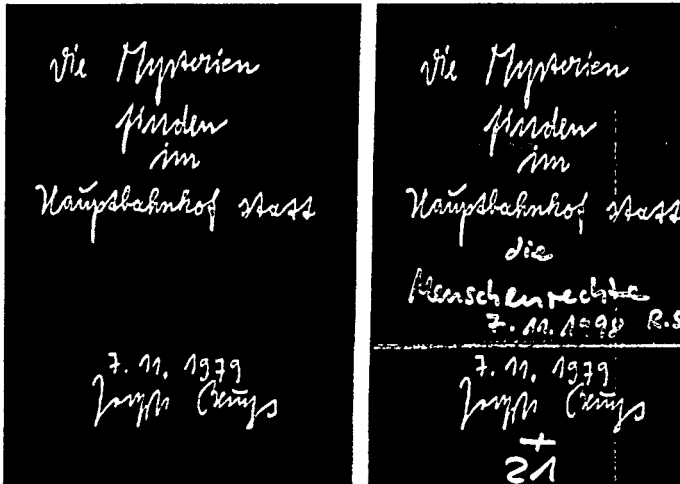 Die Mysterien
finden
im
Hauptbahnhof statt
7.11.1979
Joseph Beuys
Die Mysterien
finden
im
Hauptbahnhof, statt
die
Menschenrechte
7.11.1990 R.S
7.11.1979
Joseph Beuys
+
21